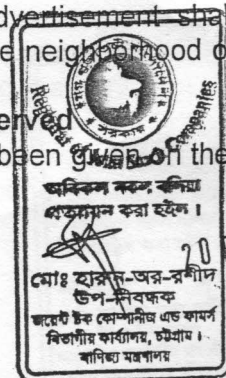 dvertisement shal
e neighborhood o
erved
been given on the
Registrar of Joint Stock Companies
অবিকল নকল বলিয়া
প্রত্যায়ন করা হইল ।
20
মোঃ হারুন-অর-রশীদ
উপ-নিবন্ধক
জয়েন্ট ষ্টক কোম্পানীজ এন্ড ফার্মস
বিভাগীয় কার্যালয়, চট্টগ্রাম ।
বাণিজ্য মন্ত্রণালয়